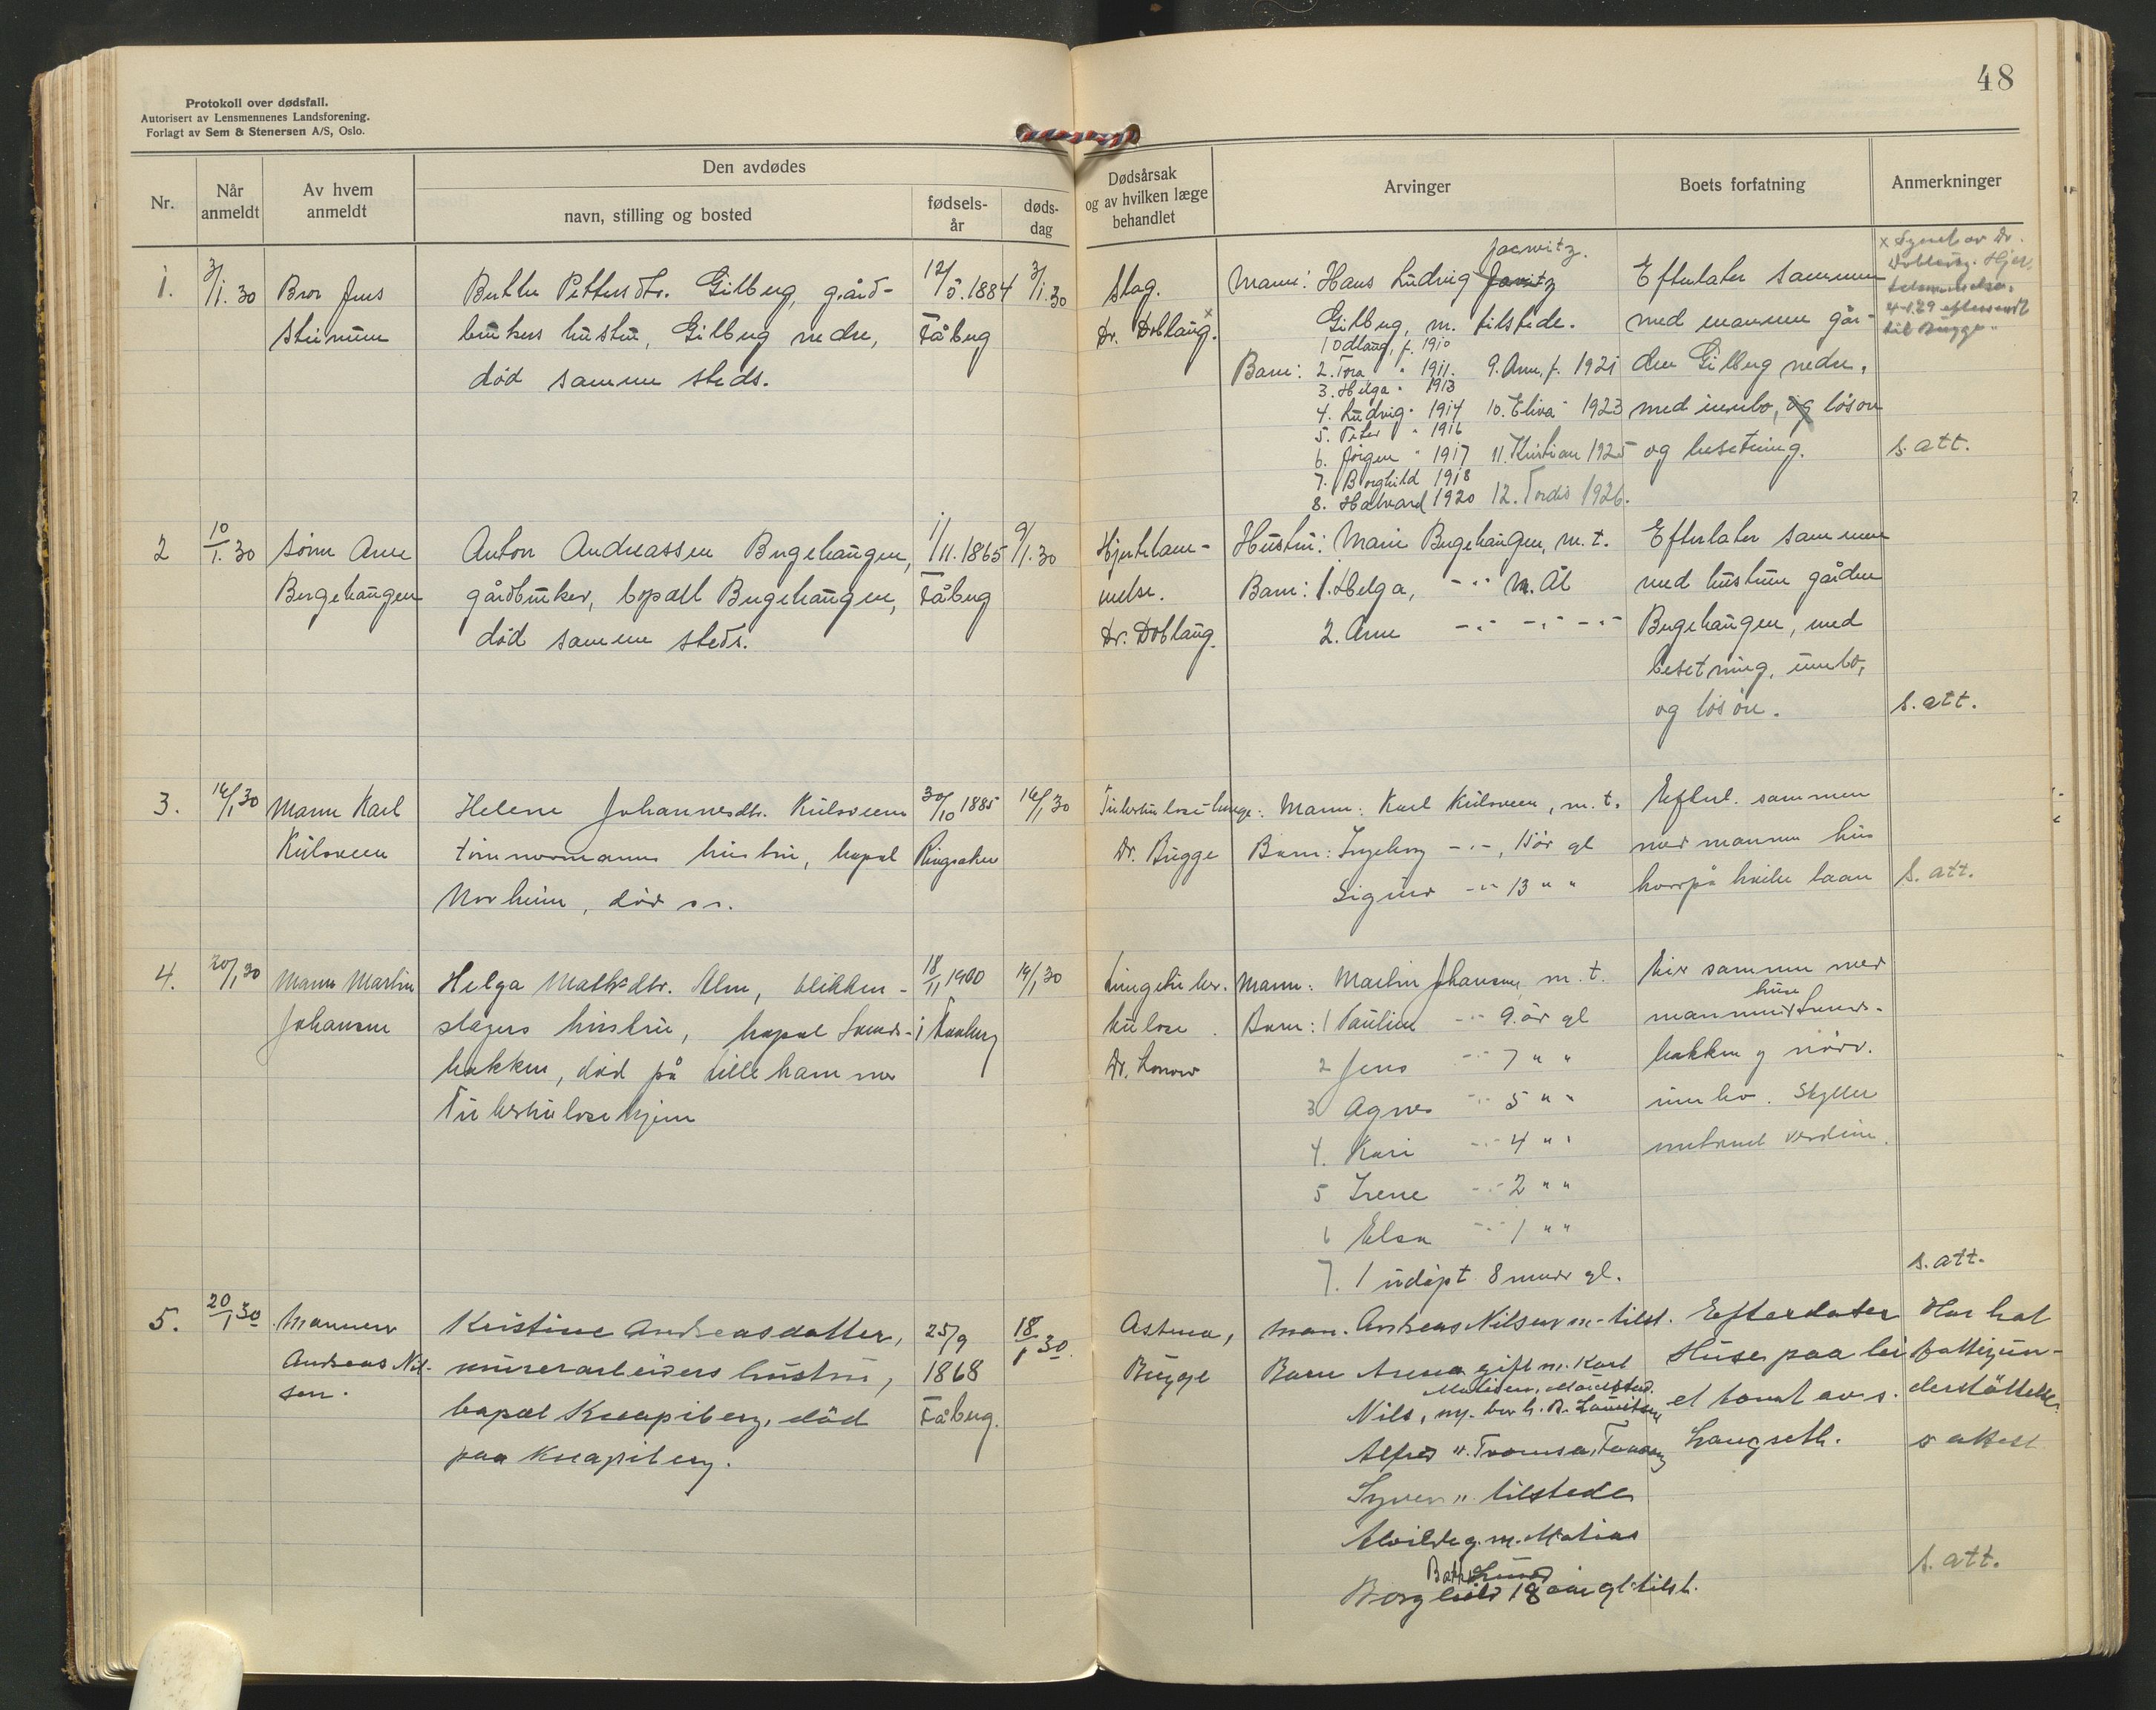 48
Protokoll over dødsfall.
Autorisert av Lensmennenes Landsforening.
Forlagt av Sem & Stenersen A/S, Oslo.
Nr.
Når anmeldt
Av hvem anmeldt
Den avdødes
navn, stilling og bosted
fødsels-år
døds-dag
Dødsårsak og av hvilken læge behandlet
Arvinger
Boets forfatning
Anmerkninger
1.
3/1.30
Bror Jens
Gilberg, gård-
brukers hustru, Gilberg nedre,
død samme steds.
12/5.1884
Fåberg
3/1.30
Slag.
Dr. Doblaug. x
Jacwitz.
Mann: Hans Ludvig
Gilberg, m. tilstede.
Barn:
1 Odlaug, f. 1910
2. Tora " 1911. 9. Arne, f. 1921
3. Helga " 1913
4. Ludvig " 1914 10. Eliva " 1923
5. Peter " 1916
6. Jörgen " 1917 11. Kristian 1925
7. Borghild 1918
8. Halvard 1920 12. Tordis 1926.
Efterlater sammen
med mannen går-
den Gilberg nedre,
med innbo, og løsøre
og besetning.
x Synet av Dr.
Doblaug. Hjer-
til Bugge"
s. att.
2
10/1.30
Sønn Arne
Bergehaugen
Anton Andreassen Bergehaugen,
gårdbruker, bopæl Bergehaugen,
død samme steds.
1/11.1865
Fåberg
9/1.30
Hjertelam-
melse.
Dr. Doblaug.
Hustru: Marie Bergehaugen, m. t.
Barn: 1. Helga, -"- m. ål
2. Arne -"- -"- -"-
Efterlater sammen
med hustruen gården
Bergehaugen, med
besetning, innbo,
og løsøre.
s. att.
3.
14/1 30
Mann Karl
Kulsveen
Helene Johannesdtr. Kulsveen
tømmermanns hustru, bopæl
Norheim, død s.s.
30/10 1885
Ringsaker
14/1 30
Tuberkulose lunge.
Dr. Bugge
Mann: Karl Kulsveen, m. t.
Barn: Ingeborg -"-, 15 år gl
Sigurd -"- 13 " "
Efterl. sammen
med mannen hus
hvorpå hviler laan
s. att.
4.
20/1 30
Mann Martin
Johansen
Helga Mathsdtr. Alm, blikken-
slagers hustru, bopæl Lunds-
bakken, død på Lillehammer
Tuberkulosehjem
18/11 1900
i Faaberg
19/1 30
Lungetuber-
kulose.
Dr.
Mann: Martin Johansen, m. t.
Barn: 1 Pauline -"- 9. år gl
2 Jens -"- 7 " "
3 Agnes -"- 5 " "
4. Kari -"- 4 " "
5 Irene -"- 2 " "
6 Elsa -"- 1 " "
7. 1 udøpt 8 mndr gl.
Eier sammen med
hus
mannen Lunds-
bakken og nødv.
innbo. Skylder
omtrent verdien.
s. att.
5.
20/1 30
Mannen
Andreas Nil-
sen.
Kristine Andreasdatter,
murerarbeiders hustru,
bopæl Knapiberg, død
paa Knapiberg.
25/9
1868
Fåberg.
18/1 30.
Astma,
Bugge
Man. Andreas Nilsen m. tilst.
Barn Anna gift m. Karl
Nils, my.
Alfred ". Tromsa, Faaberg
Syver " tilstede
Alvilde g. m. Matias
Borghild 18 aar gl. tilst.
Efterlater
Huse paa lei
et tomt av s.
Langseth.
Har hat
fattigun-
derstöttelse.
s attest
s. att.